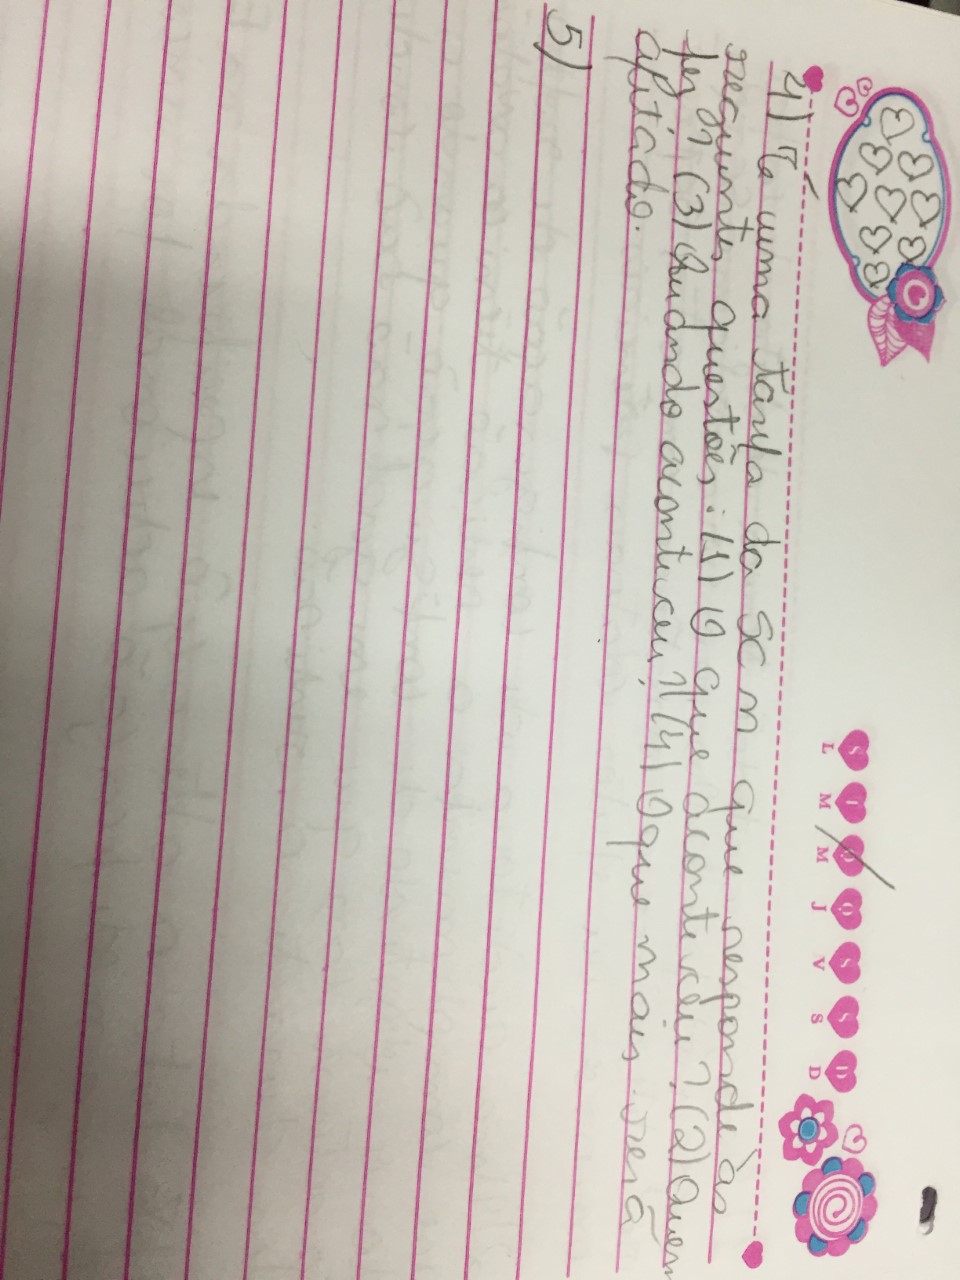 S T Q Q S S D
L M M J V S D
4) É uma tarefa da SCM que responde às
seguintes questões: (1) O que aconteceu? (2) Quem
fez? (3) Quando aconteceu? (4) O que mais será
afetado.
5)